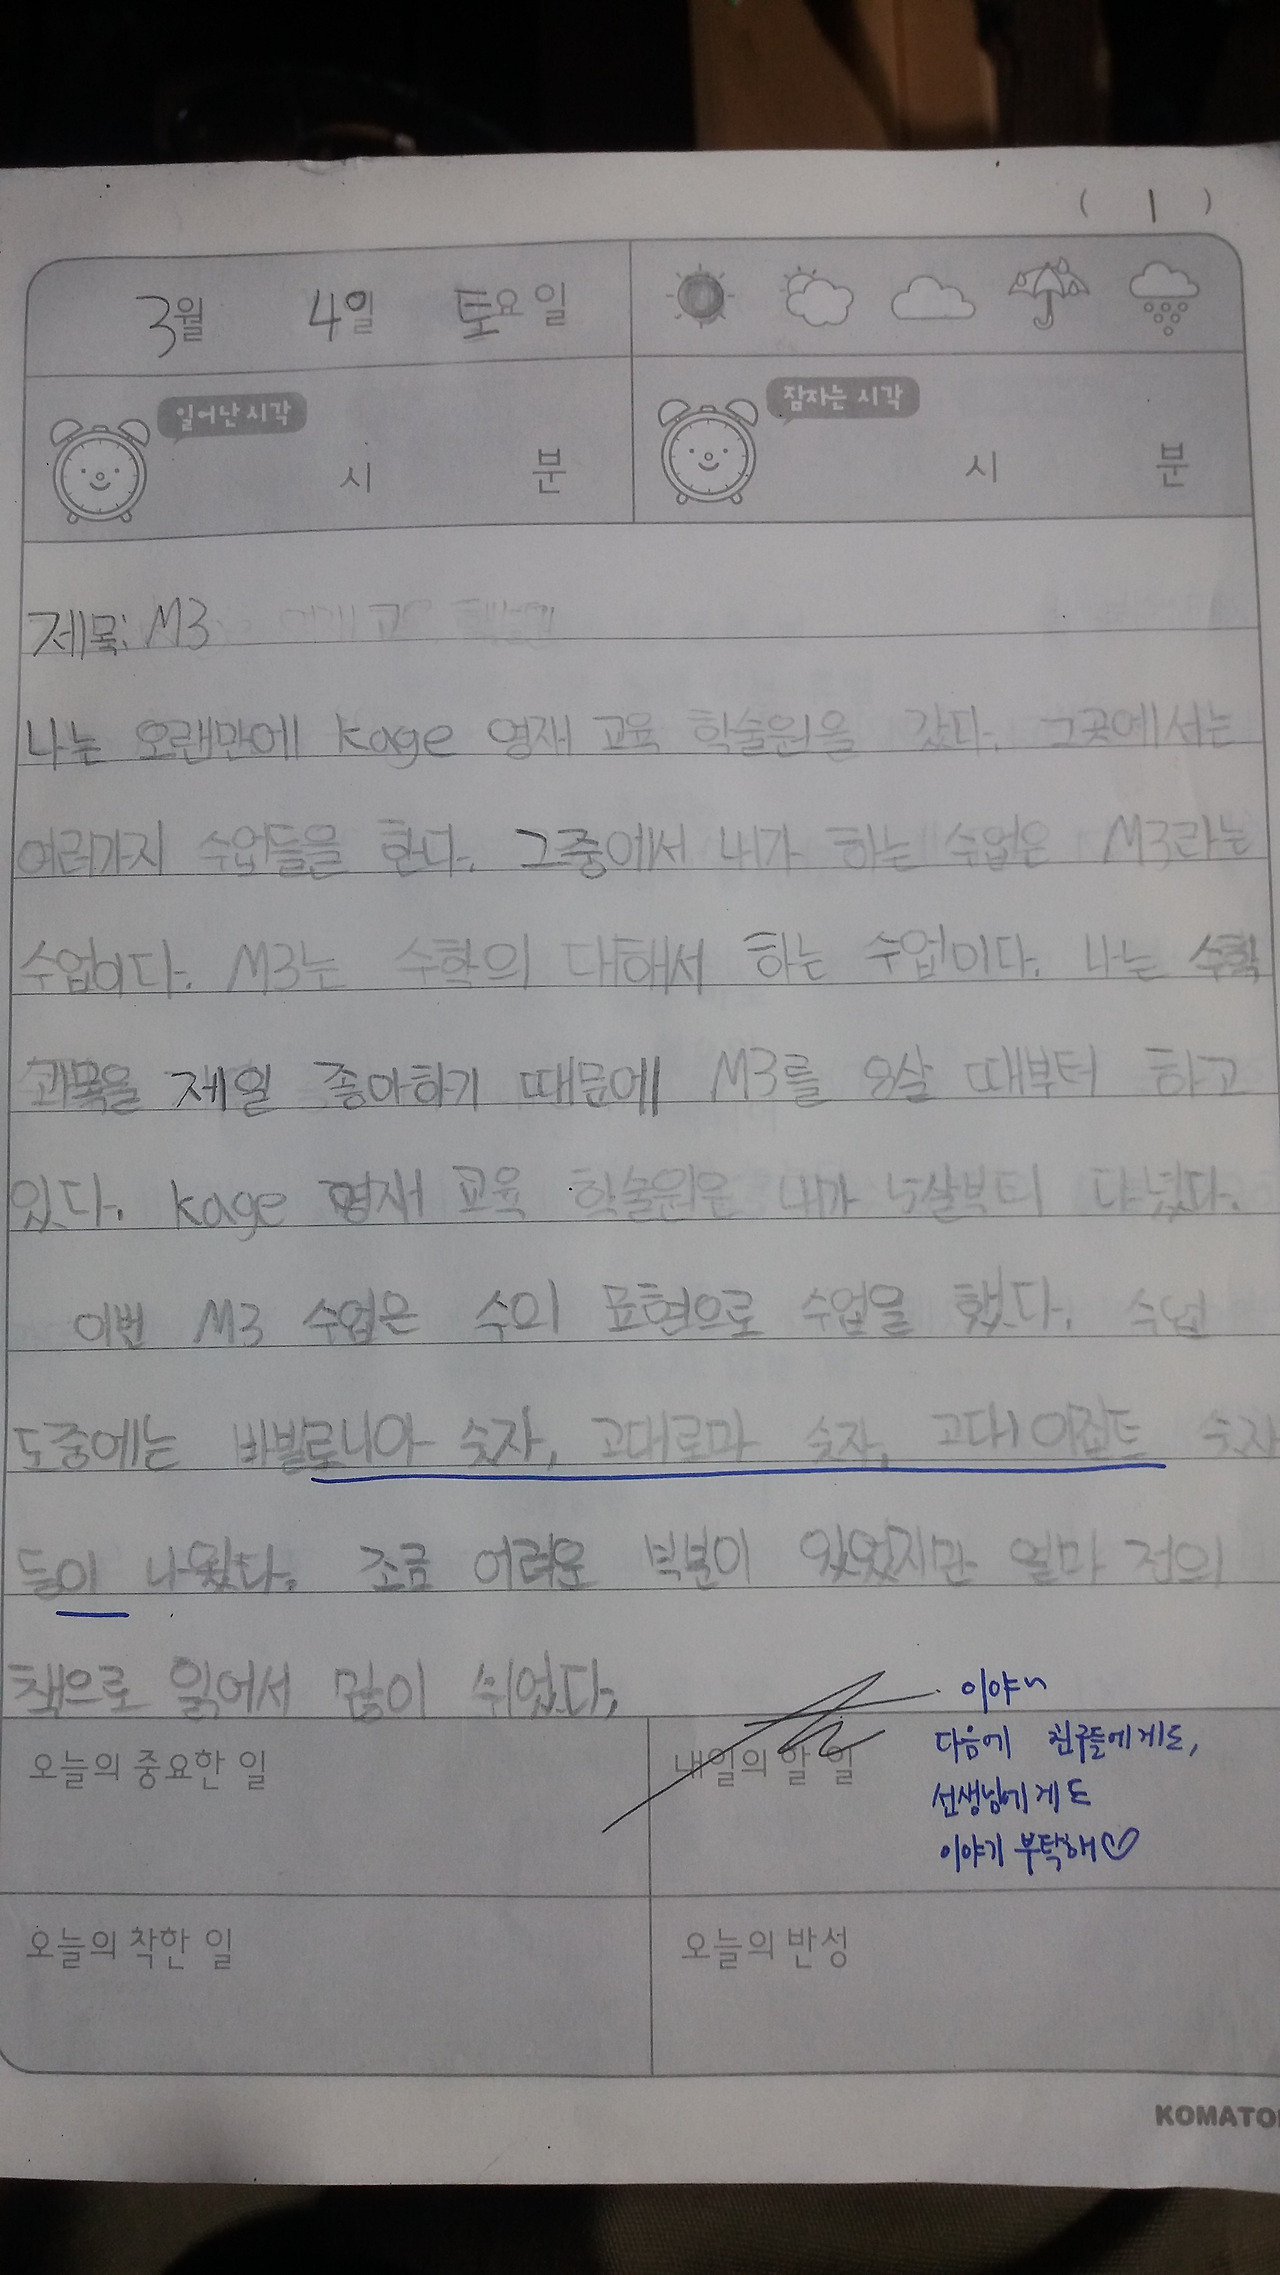 ( 1 )
3월 4일 토요일
일어난 시각 잠자는 시각
시 분 시 분
제목: M3
나는 오랜만에 kage 영재 교육 학술원을 갔다. 그곳에서는
여러가지 수업들을 한다. 그중에서 내가 하는 수업은 M3라는
수업이다. M3는 수학의 대해서 하는 수업이다. 나는 수학
과목을 제일 좋아하기 때문에 M3를 8살 때부터 하고
있다. kage 영재 교육 학술원은 내가 5살부터 다녔다.
이번 M3 수업은 수의 표현으로 수업을 했다. 수업
도중에는 바빌로니아 숫자, 고대로마 숫자, 고대이집트 숫자
들이 나왔다. 조금 어려운 부분이 있었지만 얼마 전의
책으로 읽어서 많이 쉬었다.
이야~
다음에 친구들에게도,
선생님에게도
이야기 부탁해♡
오늘의 중요한 일 내일의 할 일
오늘의 착한 일 오늘의 반성